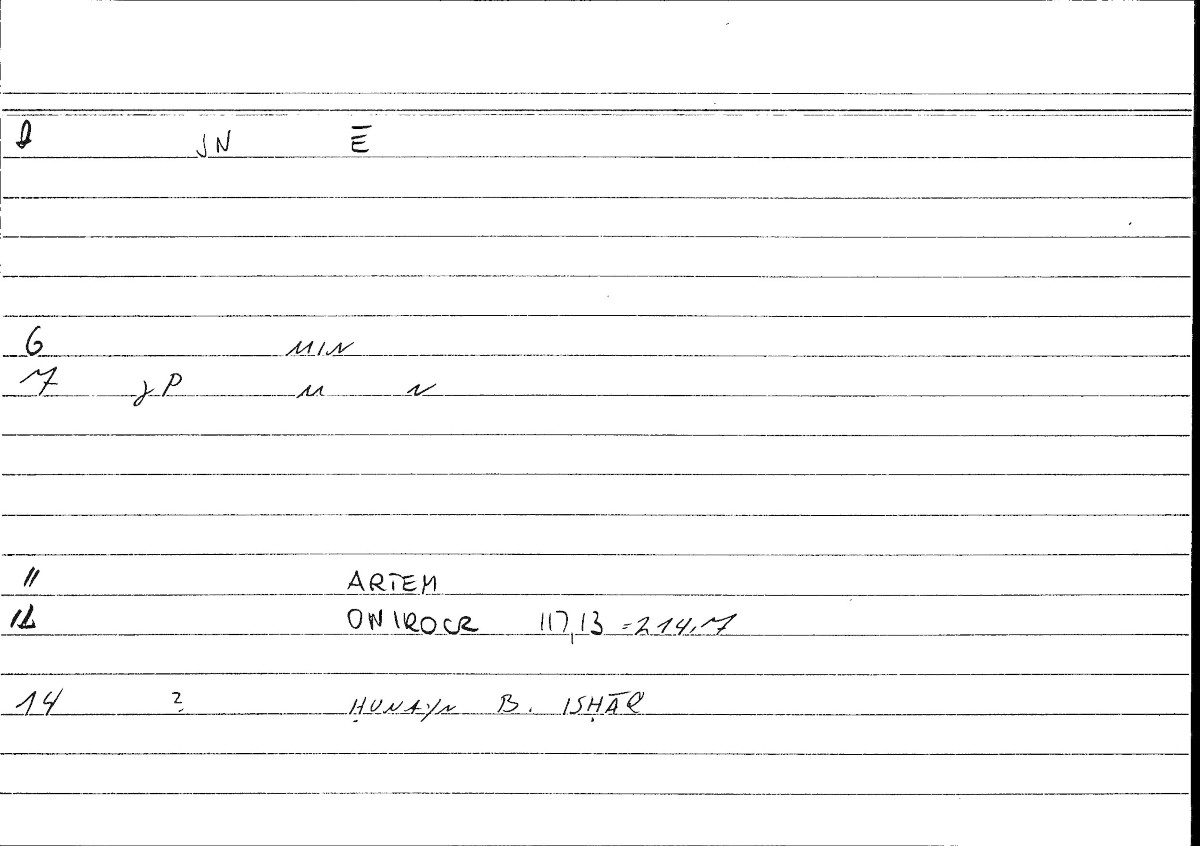 1 JN Ē
6 MIN
7 γP M N
11 ARTEM
12 ONIROCR 117,13 = 214,7
14 ? ḤUNAYN B. ISḤĀQ